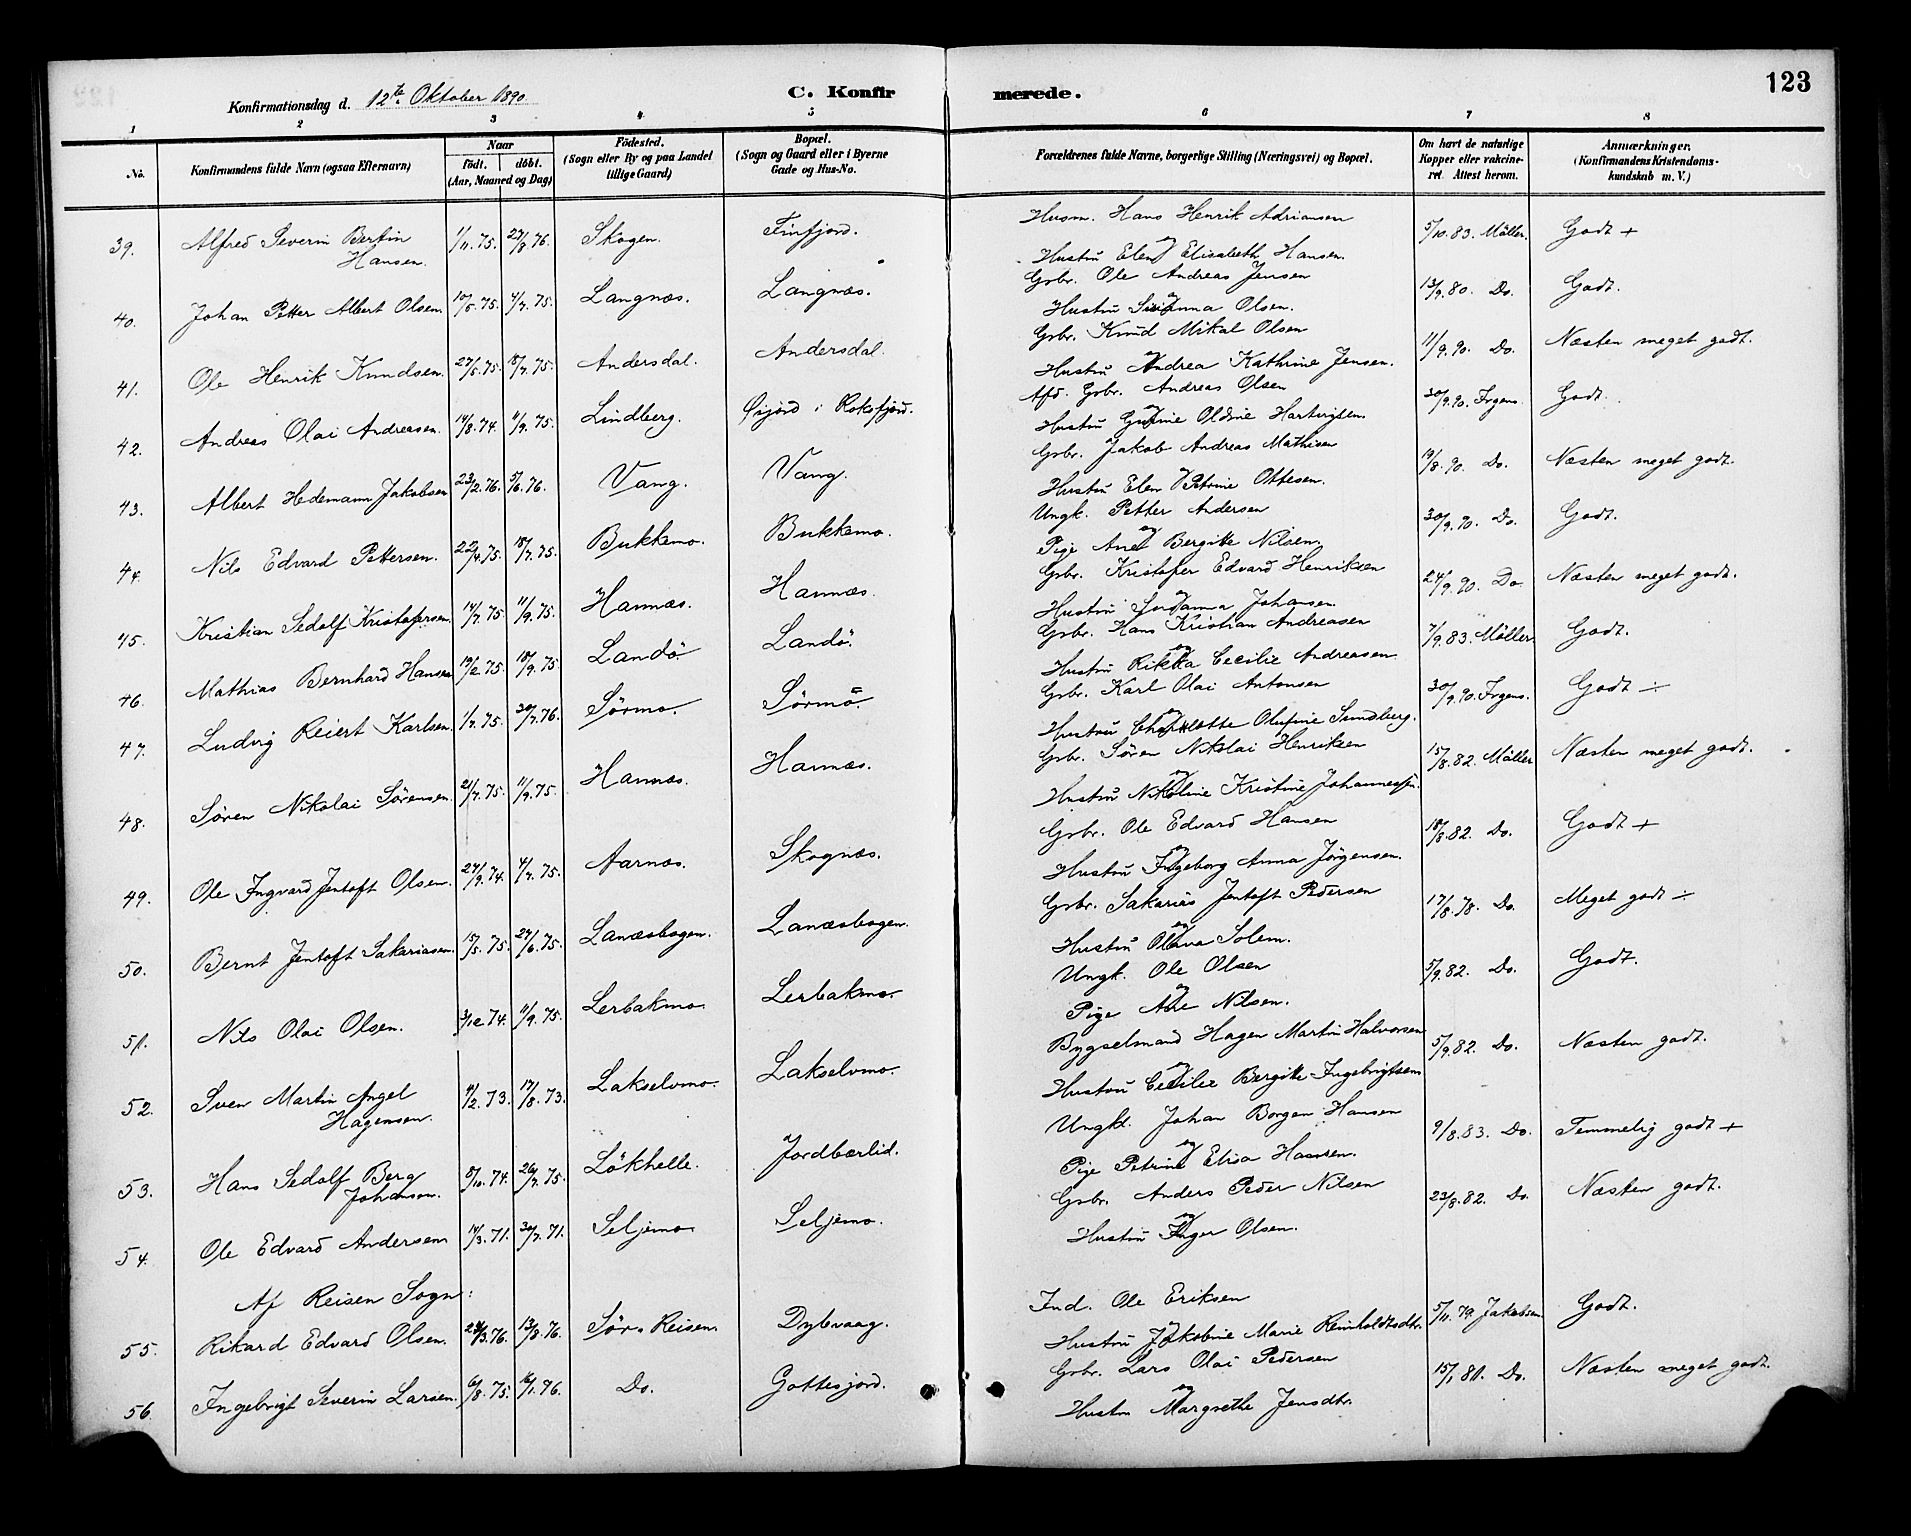 123
Konfirmationsdag d. 12te Oktober 1890
C. Konfirmerede.
1 2 3 4 5 6 7 8
No. Konfirmandens fulde Navn (ogsaa Efternavn) Naar födt. döbt. (Aar, Maaned og Dag) Födested. (Sogn eller By og paa Landet tillige Gaard) Bopæl. (Sogn og Gaard eller i Byerne Gade og Hus-No. Forældrenes fulde Navne, borgerlige Stilling (Næringsvei) og Bopæl. Om havt de naturlige Kopper eller vakcineret. Attest herom. Anmærkninger. (Konfirmandens Kristendomskundskab m. V.)
39. Alfred Severin Bertin Hansen. 1/11.75. 27/8.76. Skogen. Finfjord. Husm. Hans Henrik Adriansen og Hustru Elen Elisabeth Hansen. 5/10.83. Möller. Godt +
40. Johan Petter Albert Olsen. 10/5.75. 4/7.75. Langnæs. Langnæs. Gsbr. Ole Andreas Jensen og Hustru Susanna Olsen. 13/9.80. Do. Godt.
41. Ole Henrik Knudsen. 27/5.75. 18/7.75. Andersdal. Andersdal. Gsbr. Knud Mikal Olsen og Hustru Andrea Kathrine Jensen. 11/9.90. Do. Næsten meget godt.
42. Andreas Olai Andreasen. 14/8.74. 11/9.75. Lindberg. Øijord i Roksfjord. Afd. Gsbr. Andreas Olsen og Hustru Oldine Hartvigsen. 30/9.90. Irgens. Godt.
43. Albert Hedemann Jakobsen 23/2.76. 5/6.76. Vang. Vang. Gsbr. Jakob Andreas Mathisen og Hustru Elen Petrine Ottesen. 19/8.90. Do. Næsten meget godt.
44. Nils Edvard Pettersen. 22/4.75. 18/7.75. Bukkemo. Bukkemo. Ungk. Petter Andersen og Pige Ane Bergitte Nilsen. 30/9.90. Do. Godt.
45. Kristian Sedolf Kristofersen. 14/7.75. 11/9.75. Havnæs. Havnæs. Gsbr. Kristofer Edvard Henriksen og Hustru Johansen. 24/9.90. Do. Næsten meget godt.
46. Mathias Bernhard Hansen 19/2.75. 18/9.75. Landö. Landö. Gsbr. Hans Kristian Andreasen og Hustru Rikka Cecilie Andreasen. 7/9.83. Möller. Godt.
47. Ludvig Reiert Karlsen. 1/7.75. 30/7.76. Sörmo. Sörmo. Gsbr. Karl Olai Antonsen og Hustru Charlotte Olufine Sundberg. 30/9.90. Irgens. Godt ÷
48. Søren Nikolai Sørensen. 21/7.75. 11/9.75. Havnæs. Havnæs. Gsbr. Søren Nikolai Henriksen og Hustru Nikoline Kristine Johannessen. 15/8.82. Möller Næsten meget godt.
49. Ole Ingvard Jentoft Olsen. 27/9.74. 4/7.75. Aarnæs. Skognæs. Gsbr. Ole Edvard Hansen og Hustru Ingeborg Anna Jörgensen. 18/8.82. Do. Godt +
50. Bernt Jentoft Sakariasen. 15/5.75. 27/6.75. Lanæsbogen. Lanæsbogen. Gsbr. Sakarias Jentoft Pedersen og Hustru Solem. 17/8.78. Do. Meget godt ÷
51. Nils Olai Olsen. 3/12.74. 11/9.75. Lerbakmo. Lerbakmo. Ungk. Ole Olsen og Pige Ane Nilsen. 5/9.82. Do. Godt.
52. Sven Martin Angel Hagensen. 11/2.73. 17/8.73. Lakselvmo. Lakselvmo. Bygselmand Hagen Martin Halvorsen og Hustru Cecilie Bergitte Ingebrigtsen 5/9.82. Do. Næsten godt.
53. Hans Sedolf Berg Johansen. 8/10.74. 26/7.75. Lökhelle. Jordbærlid. Ungk. Johan Borgen Hansen og Pige Petrine Elisa Hansen. 9/8.83. Do. Temmelig godt +
54. Ole Edvard Andersen. 14/3.71. 30/7.71. Seljemo. Seljemo. Gsbr. Anders Peder Nilsen og Hustru Inger Olsen. 23/8.82. Do. Næsten godt.
Af Reisen Sogn:
55. Rikard Edvard Olsen. 24/3.76. 13/8.76. Sör-Reisen. Dybvaag. Ind. Ole Eriksen og Hustru Jakobine Marie Reinholdtsdtr. 5/11.79. Jakobsen. Godt.
56. Ingebrigt Severin Larsen. 6/8.75. 16/1.76. Do. Gottesjord. Gsbr. Lars Olai Pedersen og Hustru Margrethe Jensdtr. 15/1.81. Do. Næsten meget godt.